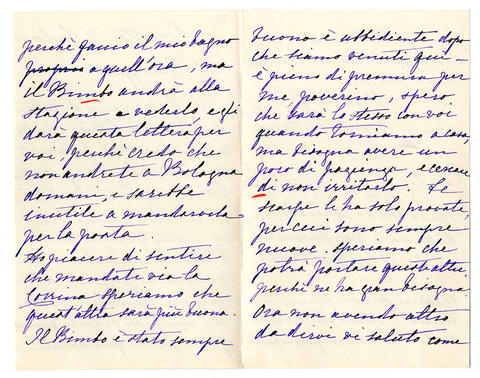 perchè faccio il mio bagno
proprio a quell'ora, ma
il Bimbo andrà alla
stazione a vederlo, e gli
darà questa lettera per
voi, perchè credo che
non andrete a Bologna
domani, e sarebbe
inutile a mandarvela
per la posta.
Ho piacere di sentire
che mandate via la
Corrina speriamo che
quest'altra sarà più buona.
Il Bimbo è stato sempre
buono è ubbidiente dopo
che siamo venuti qui –
è pieno di premura per
me, poverino, spero
che sarà lo stesso con voi
quando torniamo a casa,
ma bisogna avere un
poco di pazienza, e cercare
di non irritarlo. Le
scarpe li ha solo provate,
per ciò sono sempre
nuove. speriamo che
potrà portare quest'altre,
perchè ne ha gran bisogno.
Ora non avendo altro
da dirvi vi saluto come